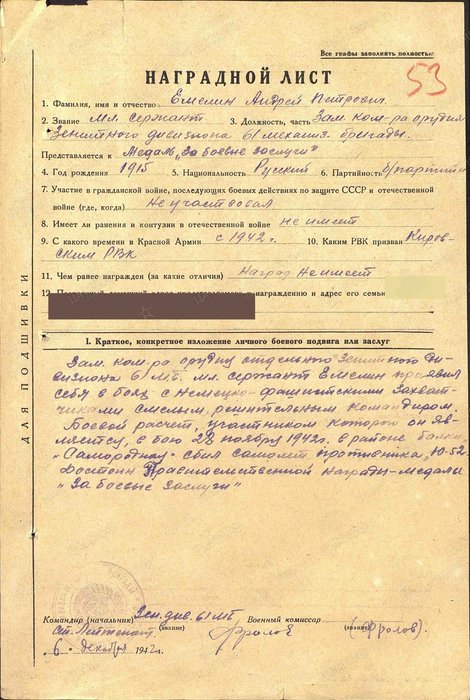 Все графы заполнять полностью
53
НАГРАДНОЙ ЛИСТ
1. Фамилия, имя и отчество Емелин Андрей Петрович
2. Звание Мл. сержант 3. Должность, часть Зам. ком-ра орудия
Зенитного дивизиона 61 механиз. бригады.
Представляется к Медаль „За боевые заслуги"
4. Год рождения 1915 5. Национальность Русский 6. Партийность б/партийн
7. Участие в гражданской войне, последующих боевых действиях по защите СССР и отечественной
войне (где, когда) Не участвовал
8. Имеет ли ранения и контузии в отечественной войне не имеет
9. С какого времени в Красной Армии с 1942 г. 10. Каким РВК призван Киров-
ским РВК
11. Чем ранее награжден (за какие отличия) Наград Не имеет
12. награждению и адрес его семьи
I. Краткое, конкретное изложение личного боевого подвига или заслуг
Зам. ком-ра орудия отдельного Зенитного ди-
визиона 61 МБ. мл. сержант Емелин проявил
себя в боях с Немецко-фашистскими Захват-
чиками смелым, решительным командиром.
Боевой расчет, участником которого он яв-
ляется, в бою 28 ноября 1942 г. в районе балки
„Самородная" сбил самолет противника „Ю-52
Достоин Правительственной награды-медали
„За боевые заслуги"
ДЛЯ ПОДШИВКИ
Командир (начальник) Зен. див. 61 МБ Военный комиссар
Ст. Лейтенант (звание) Фролов (звание) (Фролов).
„6" декабря 1942 г.